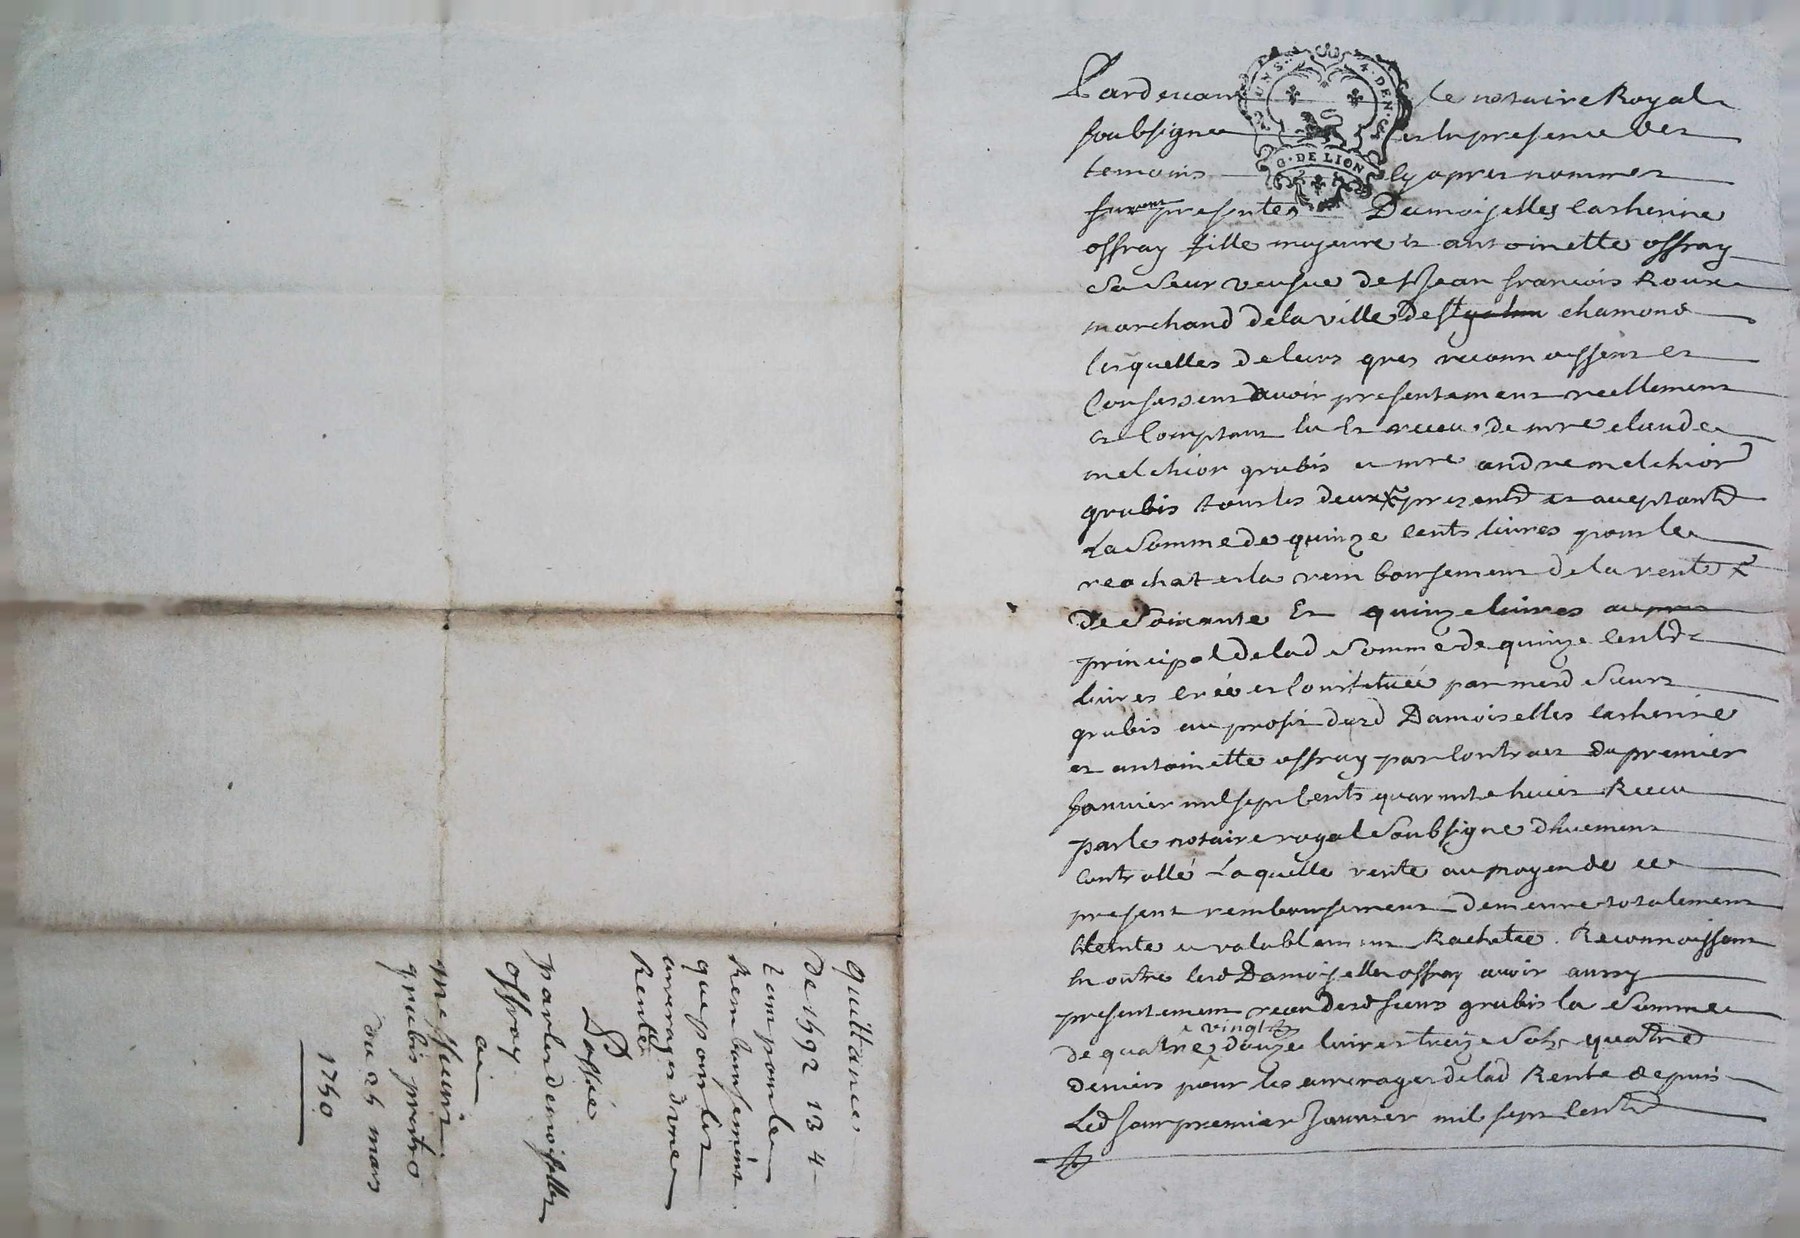 Pardevant le notaire Royal
soubsigne et en presence des
temoins cy apres nommes
furent presentes Demoiselles Catherine
offray fille majeure et antoinette offray
sa seur veusve de Sr Jean francois Roux
marchand de la ville de St chamond
lesquelles de leurs gres reconnoissent et
Confessent avoir presentement reellement
et Comptant eu et receu de mre claude
melchior grubis et mre andre melchior
grubis tous les deux presents et aceptants
La Somme de quinze cents livres pour le
reachat et la remboursement de la rente
de Soixante et quinze livres au
principal de lad Somme de quinze cents
livres creée et Constituéé par mesd Sieurs
grubis au profit desd Damoiselles Catherine
et antoinette offray par Contract du premier
Janvier mil sept Cents quarante huict Receu
par le notaire royal Soubsigne dhuement
Controllé Laquelle rente au moyen de ce
present remboursement demeure totalement
éteinte et valablement Rachetée. Reconnoissant
En outre lesd Damoiselles offray avoir aussy
presentement receu desd Sieurs grubis la Somme
de quatre vingt douze livres treize Sols quatre
deniers pour les arrerages de lad Rente depuis
Led Jour premier Janvier mil sept Cents
G. DE LION
Quittance
De 1592 13 4
tant pour le
Remboursement
que pour les
arrerages d'une
Rente
Passée
par les demoiselles
offray
a
messieurs
grubis pretres
du 25 mars
1750